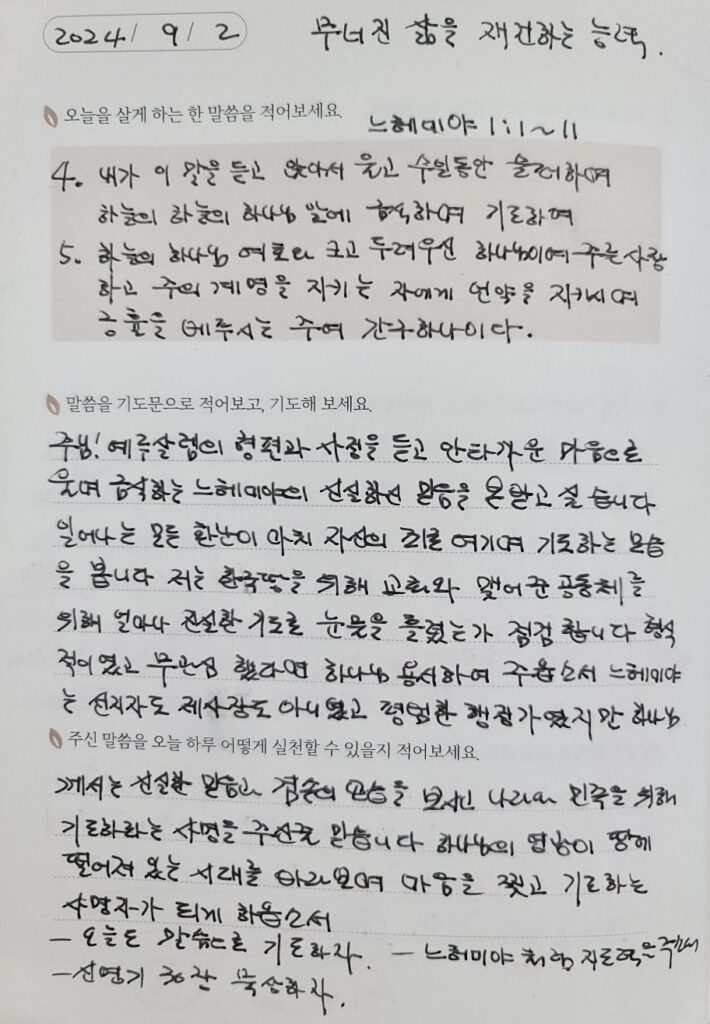 2024/ 9 / 2 무너진 삶을 재건하는 능력.
오늘을 살게 하는 한 말씀을 적어보세요. 느헤미야 1:1~11
4. 내가 이 말을 듣고 앉아서 울고 수일동안 슬퍼하며
하늘의 하늘의 하나님 앞에 금식하며 기도하여
5. 하늘의 하나님 여호와 크고 두려우신 하나님이여 주를 사랑
하고 주의 계명을 지키는 자에게 언약을 지키시며
긍휼을 베푸시는 주여 간구하나이다.
말씀을 기도문으로 적어보고, 기도해 보세요.
주님! 예루살렘의 형편과 사정을 듣고 안타까운 마음으로
울며 금식하는 느헤미야의 신실하신 믿음을 본받고 싶습니다
일어나는 모든 환난이 마치 자신의 죄로 여기며 기도하는 모습
을 봅니다 저는 한국땅을 위해 교회와 맺어준 공동체를
위해 얼마나 진실한 기도로 눈물을 흘렸는가 점검합니다 형식
적이였고 무관심 했다면 하나님 용서하여 주옵소서 느헤미야
는 선지자도 제사장도 아니였고 평범한 행정가였지만 하나님
주신 말씀을 오늘 하루 어떻게 실천할 수 있을지 적어보세요.
께서는 신실한 믿음과 겸손의 모습을 보시고 나라와 민족을 위해
기도하라는 사명을 주신줄 믿습니다 하나님의 영광이 땅에
떨어져 있는 시대를 바라보며 마음을 찢고 기도하는
사명자가 되게 하옵소서
– 오늘도 말씀으로 기도하자. – 느헤미야 처럼 주소서
– 신명기 30장 묵상하자.